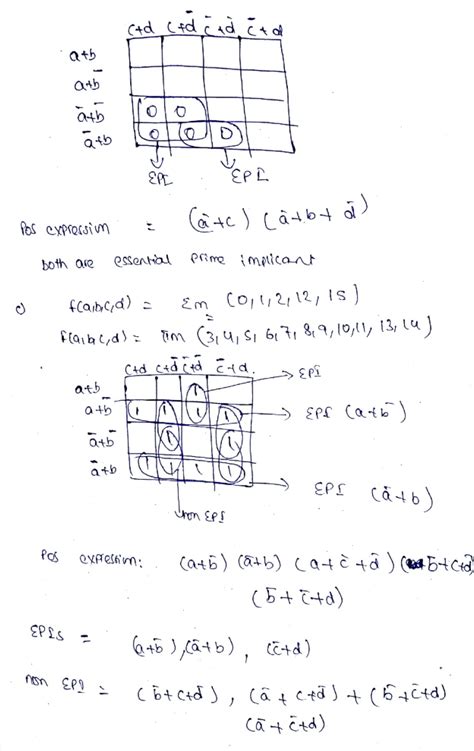 c+d c+d̄ c̄+d̄ c̄+d
a+b
a+b̄
ā+b̄
0 0
ā+b
0 0 0
EPI EPI
POS expression = (ā+c) (ā+b+d̄)
both are essential prime implicant
c) f(a,b,c,d) = Σm (0,1,2,12,15)
f(a,b,c,d) = πm (3,4,5,6,7,8,9,10,11,13,14)
c+d c+d̄ c̄+d̄ c̄+d
a+b
1
→ EPI
a+b̄
1 1 1 1
→ EPI (a+b̄)
ā+b̄
1 1
ā+b
1 1 1 1
→ EPI (ā+b)
non EPI
POS expression: (a+b̄) (ā+b) (a+c̄+d̄) (b̄+c+d̄)
(b̄+c̄+d)
EPIs =
(a+b̄), (ā+b), (c̄+d)
non EPI = (b̄+c+d̄), (ā+c+d̄) + (b̄+c̄+d)
(ā+c̄+d)